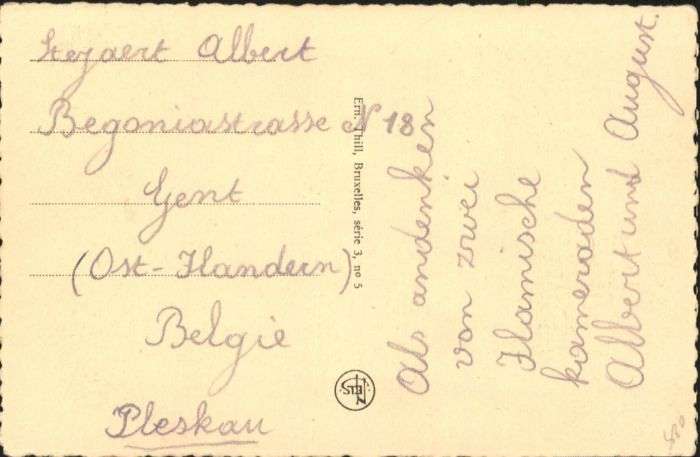 Stejaert Albert
Begoniastrasse N 18
Gent
(Ost-Flandern)
Belgie
Pleskau
Ern. Thill, Bruxelles, série 3, no 5
Als andenken
von zwei
Flamische
kameraden
Albert und August.